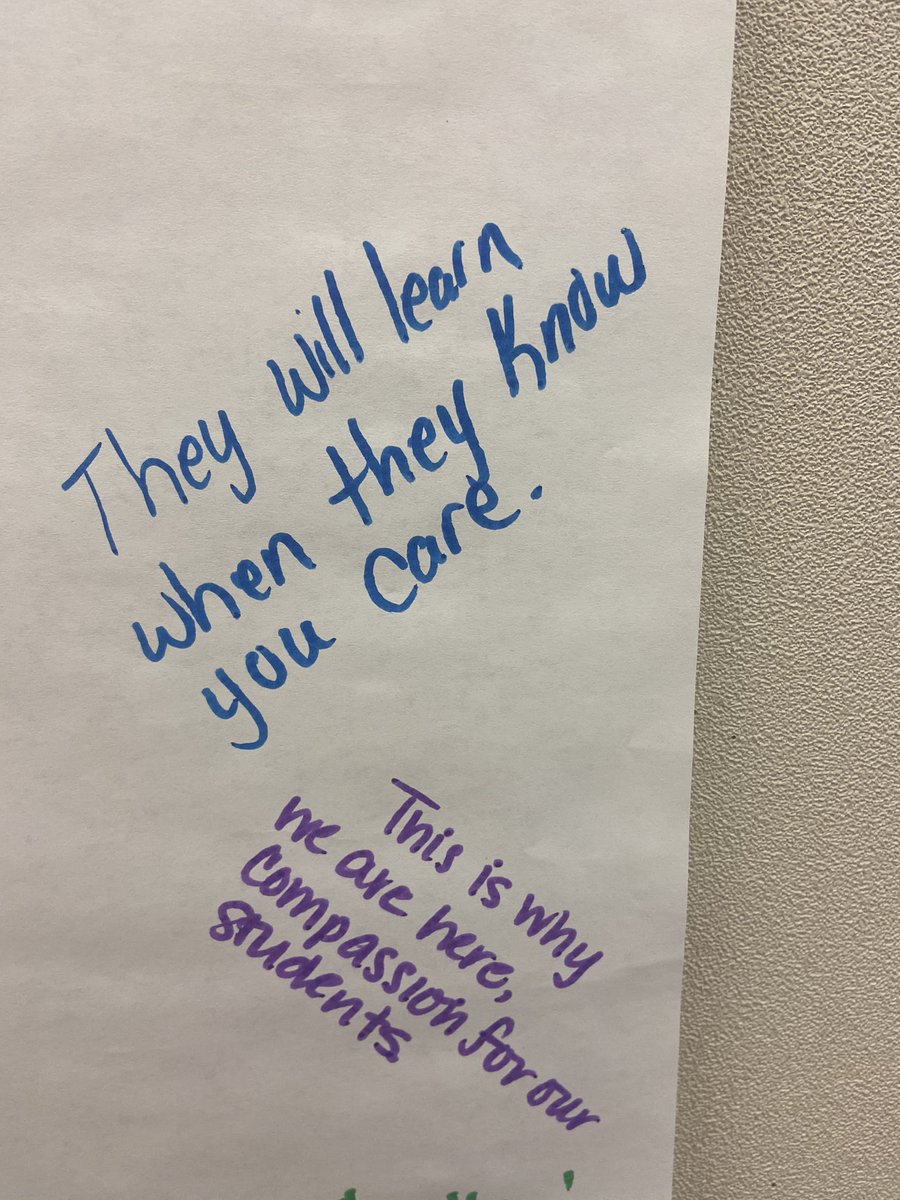 They will learn
when they know
you care.
This is why
we are here,
compassion for our
students